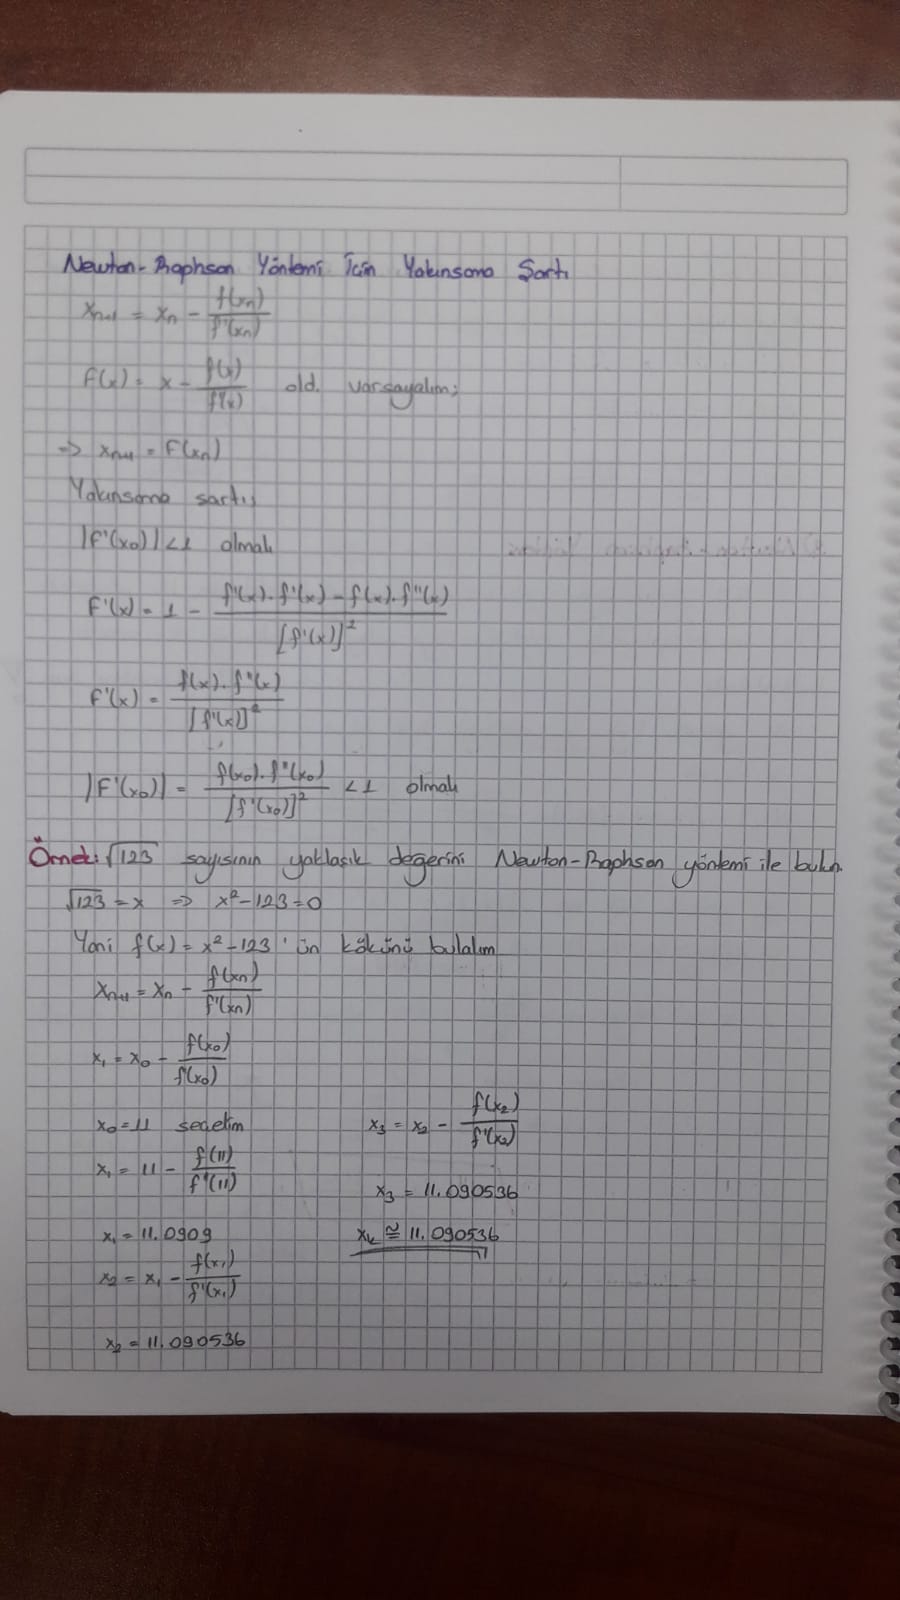 Newton-Raphson Yöntemi İçin Yakınsama Şartı
xₙ₊₁ = xₙ - f(xₙ)/f'(xₙ)
F(x) = x - f(x)/f'(x) old. varsayalım;
=> xₙ₊₁ = F(xₙ)
Yakınsama şartı;
|F'(x₀)| < 1 olmalı
F'(x) = 1 - (f'(x).f'(x) - f(x).f''(x))/[f'(x)]²
F'(x) = f(x).f''(x)/[f'(x)]²
|F'(x₀)| = f(x₀).f''(x₀)/[f'(x₀)]² < 1 olmalı
Örnek: √123 sayısının yaklaşık değerini Newton-Raphson yöntemi ile bulun.
√123 = x => x² - 123 = 0
Yani f(x) = x² - 123 'ün kökünü bulalım
xₙ₊₁ = xₙ - f(xₙ)/f'(xₙ)
x₁ = x₀ - f(x₀)/f'(x₀)
x₀ = 11 seçelim
x₁ = 11 - f(11)/f'(11)
x₁ = 11.0909
x₂ = x₁ - f(x₁)/f'(x₁)
x₂ = 11.090536
x₃ = x₂ - f(x₂)/f'(x₂)
x₃ = 11.090536
xₖ ≅ 11.090536